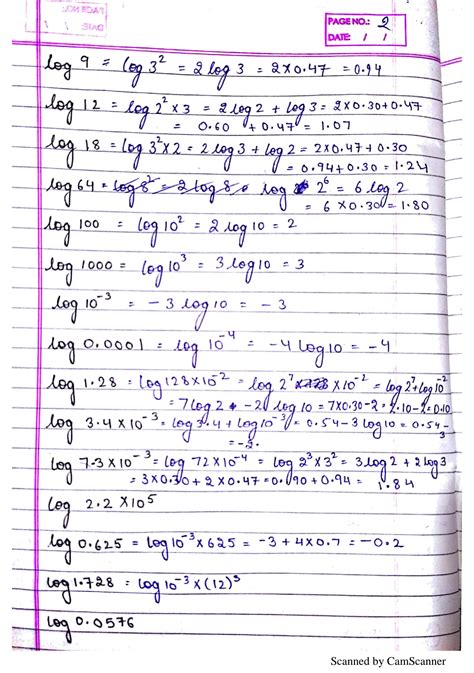 PAGE NO.: 2
DATE: / /
log 9 = log 3² = 2 log 3 = 2×0.47 = 0.94
log 12 = log 2²×3 = 2 log 2 + log 3 = 2×0.30+0.47
= 0.60 + 0.47 = 1.07
log 18 = log 3²×2 = 2 log 3 + log 2 = 2×0.47+0.30
= 0.94+0.30 = 1.24
log 64 = log 8² = 2 log 8 log 2⁶ = 6 log 2
= 6 × 0.30 = 1.80
log 100 = log 10² = 2 log 10 = 2
log 1000 = log 10³ = 3 log 10 = 3
log 10⁻³ = -3 log 10 = -3
log 0.0001 = log 10⁻⁴ = -4 log 10 = -4
log 1.28 = log 128×10⁻² = log 2⁷ ×10⁻² = log 2⁷+log 10⁻²
= 7 log 2 - 2 log 10 = 7×0.30-2 = 2.10-2 = 0.10
log 3.4×10⁻³ = log 3.4 + log 10⁻³ = 0.54-3 log 10 = 0.54-3
= -2.
log 7.3×10⁻³ = log 72×10⁻⁴ = log 2³×3² = 3 log 2 + 2 log 3
= 3×0.30+2×0.47 = 0.90+0.94 = 1.84
log 2.2×10⁵
log 0.625 = log 10⁻³×625 = -3+4×0.7 = -0.2
log 1.728 = log 10⁻³×(12)³
log 0.0576
Scanned by CamScanner